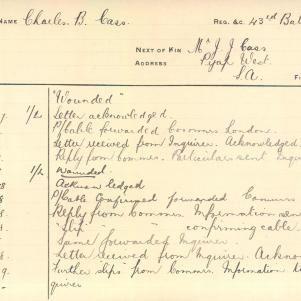 NAME Charles B. Cass. REG. &c. 43rd Bat
NEXT OF KIN Mr J. J. Cass
ADDRESS Pyap West.
S.A.
"Wounded"
1/2 Letter acknowledged.
P/Cable forwarded Commrs London.
Letter received from Inquirer. Acknowledged.
Reply from Commr. Particulars sent Inqui
1/2 Wounded.
Acknowledged
P/Cable Confirmed forwarded Commrs
Reply from Commrs Information sen
" Slip " confirming cable
Same forwarded Inquirer.
Letter received from Inquirer. Ackno
Further slips from Commr. Information
quirer